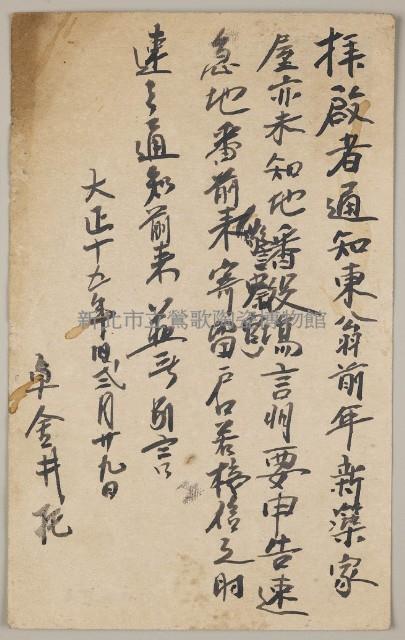 拜啟者通知東翁前年新築家
屋亦未知地番段為言明要申告速
急地番前來寄留戶口若接信之時
速々通知前來並無別言
大正十九年旧弍月廿九日
卓金井
新北市立鶯歌陶瓷博物館